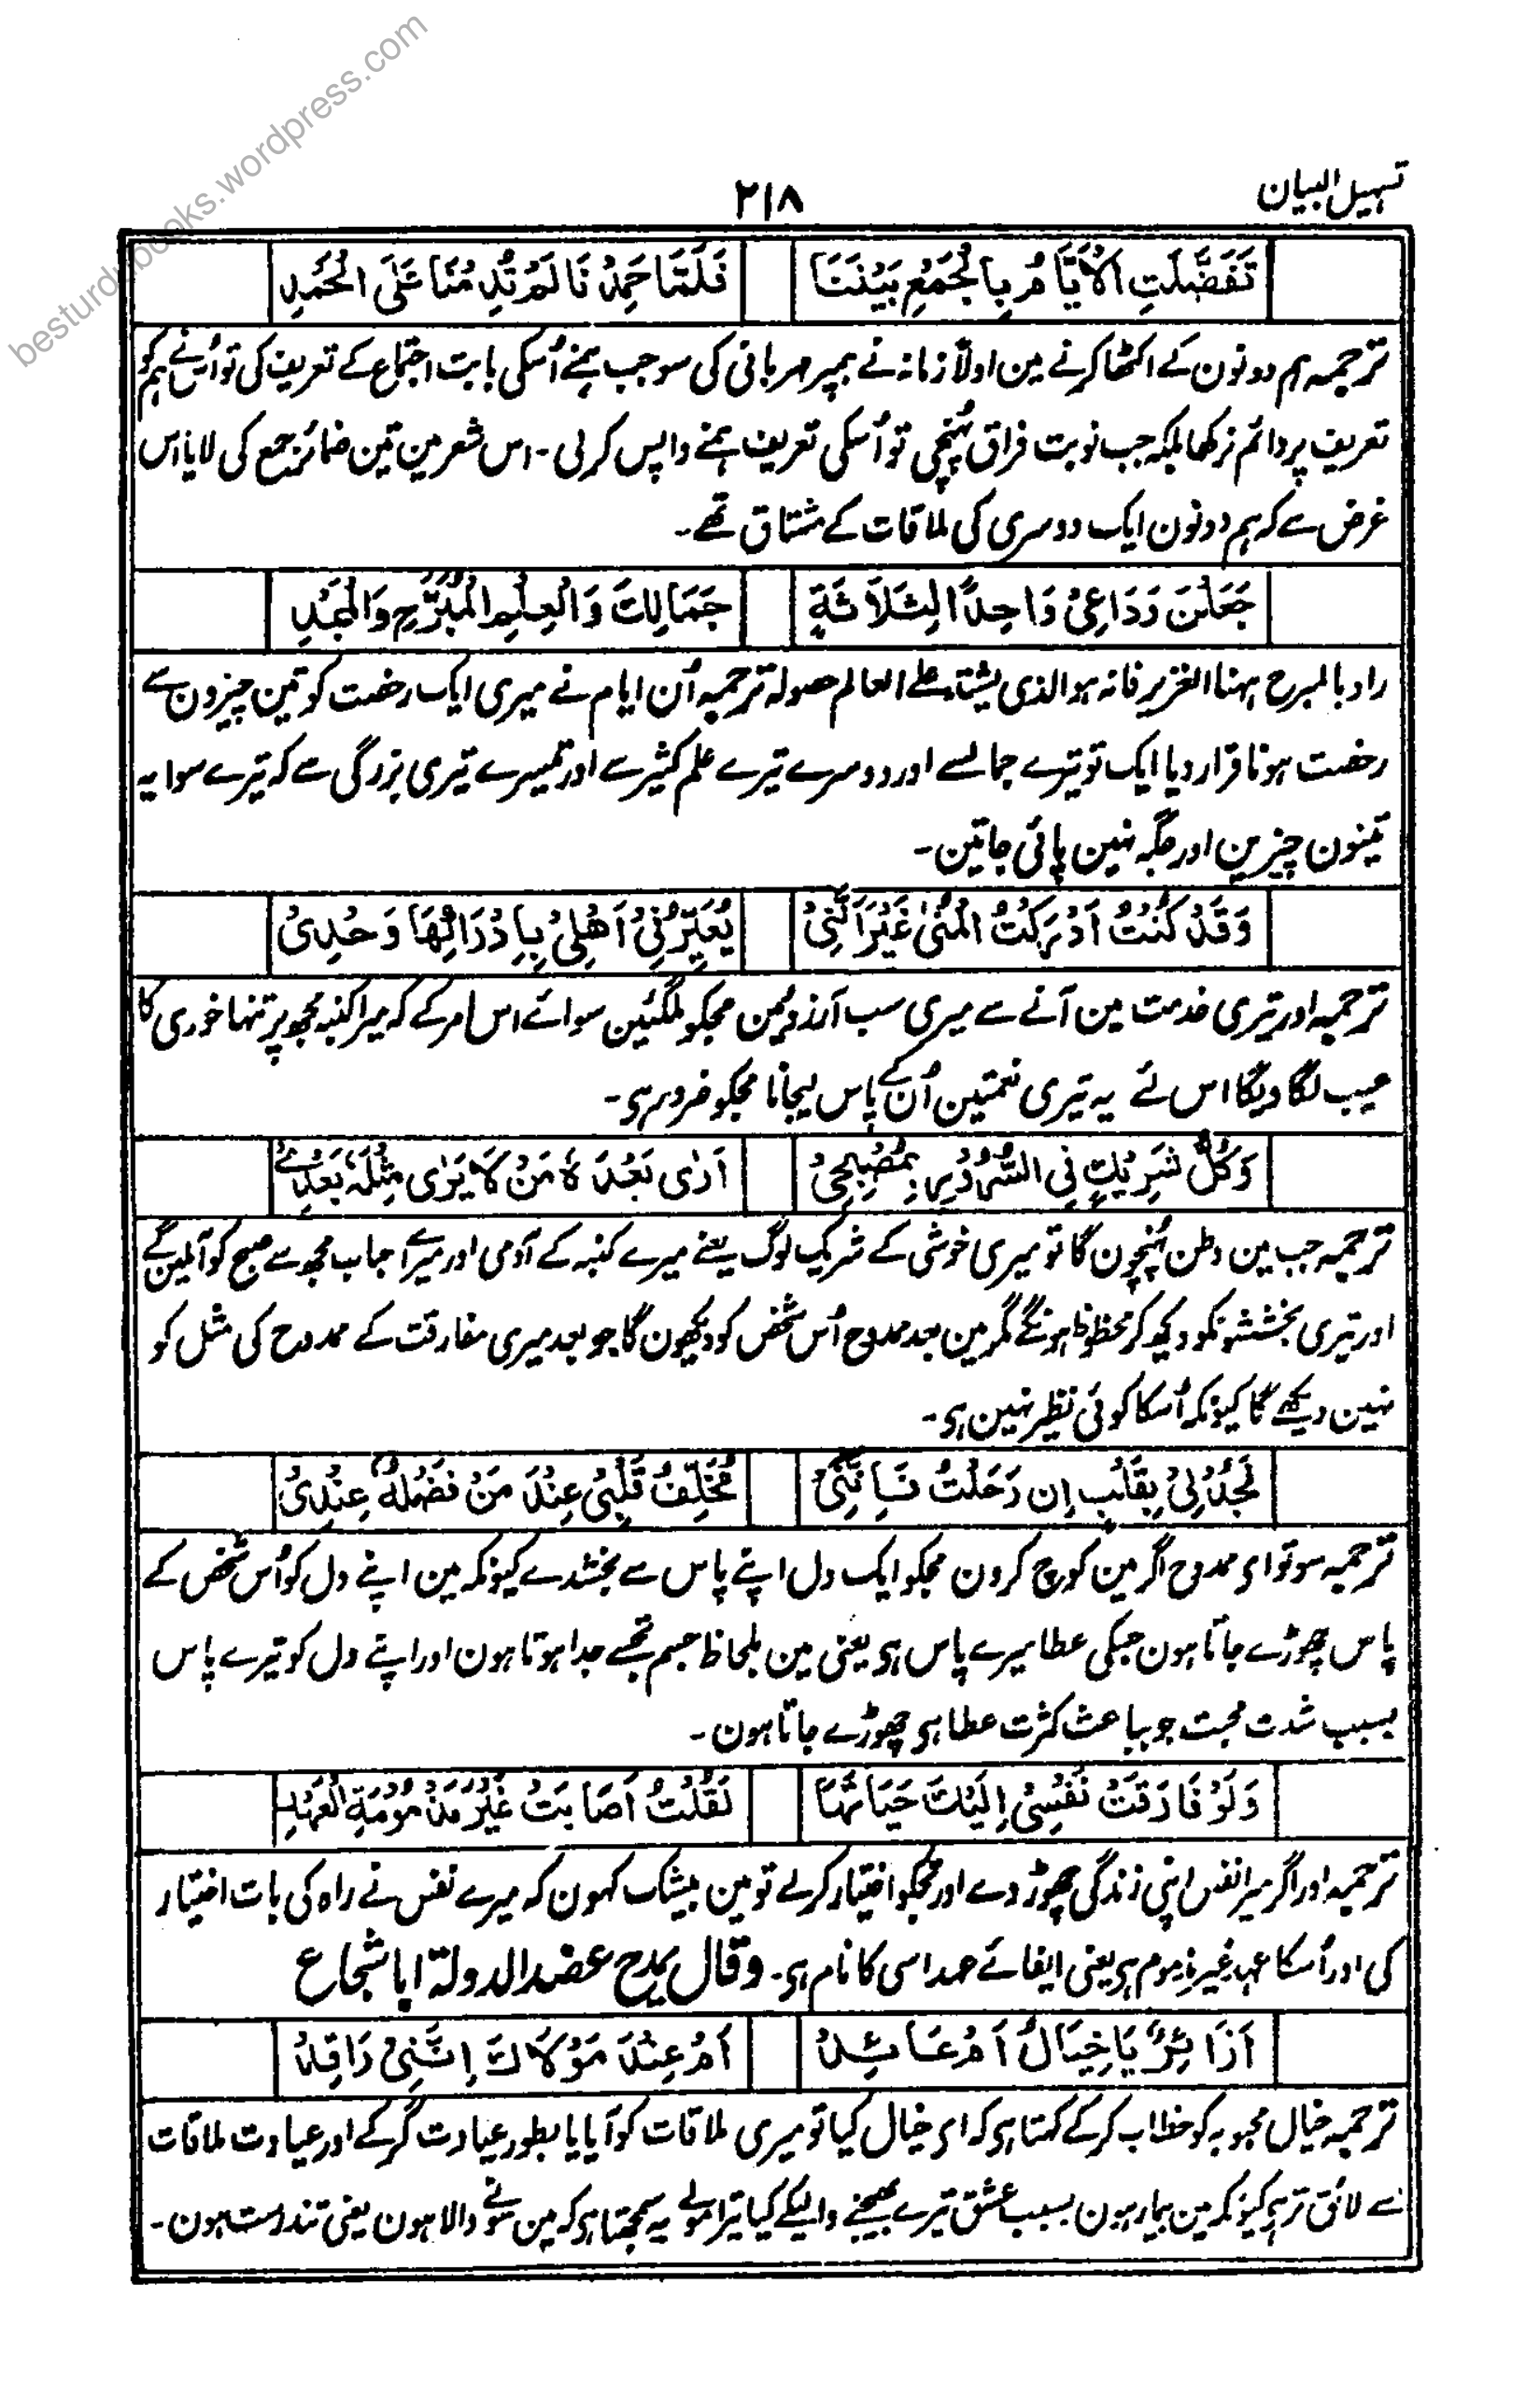 besturdubooks.wordpress.com
تسہیل البیان
۲۱۸
تَفَضَّلَتِ الْاَیَّامُ بِالْجَمْعِ بَیْنَنَا فَلَمَّا حَمِدْنَا لَمْ تُدِمْنَا عَلَی الْحَمْدِ
ترجمیہ ہم دونون کے اکٹھا کرنے مین اولاً زمانہ نے ہمپر مہربانی کی سو جب ہمنے اُسکی بابت اجتماع کے تعریف کی تو اُس نے ہم کو
تعریف پر دائم نرکھا بلکہ جب نوبت فراق پہُنچی تو اُسکی تعریف ہمنے واپس کرلی ۔ اس شعر مین تین ضمائر جمع کی لایا اس
غرض سے کہ ہم دونون ایک دوسری کی ملاقات کے مشتاق تھے۔
جَعَلْنَ وَدَاعِیْ وَاحِدًا لِثَلَاثَةٍ جَمَالِكَ وَالْعِلْمِ الْمُبَرِّحِ وَالْمَجْدِ
راد بالمبرح ہہنا الغزیر فانہ ہو الذی یشتا علے العالم حصولہ ترجمیہ اُن ایام نے میری ایک رخصت کو تین چیزون سے
رخصت ہونا قرار دیا ایک تو تیرے جمالسے اور دوسرے تیرے علم کثیر سے اور تمیسرے تیری بزرگی سے کہ تیرے سوا یہ
تینون چیزین اور جگہ نہین پائی جاتین۔
وَقَدْ کُنْتُ اَدْرَکْتُ الْمُنٰی غَیْرَ اَنَّنِیْ یُعَیِّرُنِیْ اَهْلِیْ بِاِدْرَاکِهَا وَحْدِیْ
ترجمیہ اور تیری خدمت مین آنے سے میری سب آرزوئین مجکو ملگئین سوائے اس امر کے کہ میرا کنبہ مجھپر تنہا خوری کا
عیب لگا دیگا اس لئے یہ تیری نعمتین اُن کے پاس لیجانا مجکو ضرور ہی۔
وَکُلُّ شَرِیْكٍ فِی السُّرُوْرِ بِمُصْبِحِیْ اَرٰی بَعْدَهٗ مَنْ لَا یَرٰی مِثْلَهٗ بَعْدِیْ
ترجمیہ جب مین وطن پہُنچون گا تو میری خوشی کے شریک لوگ یعنے میرے کنبہ کے آدمی اور میرے احباب مجھسے صبح کو آملین گے
اور تیری بخششونکو دیکھ کر محظوظ ہونگے مگر مین بعد ممدوح اُس شخص کو دیکھون گا جو بعد میری مفارقت کے ممدوح کی مثل کو
نہین دیکھے گا کیونکہ اُسکا کوئی نظیر نہین ہی۔
فَجُدْ لِیْ بِقَلْبٍ اِنْ رَحَلْتُ فَاِنَّنِیْ مُخَلِّفُ قَلْبِیْ عِنْدَ مَنْ فَضْلُهٗ عِنْدِیْ
ترجمیہ سو تو ای ممدوح اگر مین کوچ کرون مجکو ایک دل اپنے پاس سے بخشدے کیونکہ مین اپنے دل کو اُس شخص کے
پاس چھوڑے جاتا ہون جسکی عطا میرے پاس ہی یعنی مین بلحاظ جسم تجسے جدا ہوتا ہون اور اپنے دل کو تیرے پاس
بسبب شدت محبت جو بباعث کثرت عطا ہی چھوڑے جاتا ہون۔
وَلَوْ فَارَقَتْ نَفْسِیْ اِلَیْكَ حَیَاتَهَا لَقُلْتُ اَصَابَتْ غَیْرَ مَذْمُوْمَةِ الْعَهْدِ
ترجمیہ اور اگر میرا نفس اپنی زندگی چھوڑ دے اور تجکو اختیار کرلے تو مین بیشک کہون کہ میرے نفس نے راہ کی بات اختیار
کی اور اُسکا عہد غیر مذموم ہی یعنی ایفائے عہد اسی کا نام ہی۔ وقال یمدح عضد الدولة ابا شجاع
اَزَائِرٌ یَا خِیَالُ اَمْ عَائِدْ اَمْ عِنْدَ مَوْلَاكَ اِنَّنِیْ رَاقِدْ
ترجمیہ خیال محبوبہ کو خطاب کرکے کہتا ہی کہ ای خیال کیا تو میری ملاقات کو آیا یا بطور عیادت گر کے اور عیادت ملاقات
سے لائق تر ہی کیونکہ مین بیمار ہون بسبب عشق تیرے بھیجنے والیکے کیا تیرا مولے یہ سمجھتا ہی کہ مین سونے والا ہون یعنی تندرست ہون۔